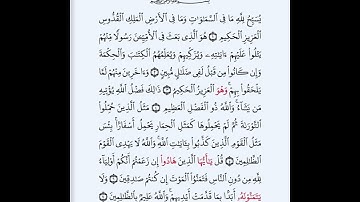 يُسَبِّحُ لِلَّهِ مَا فِي ٱلسَّمَٰوَٰتِ وَمَا فِي ٱلۡأَرۡضِ ٱلۡمَلِكِ ٱلۡقُدُّوسِ
ٱلۡعَزِيزِ ٱلۡحَكِيمِ ١ هُوَ ٱلَّذِي بَعَثَ فِي ٱلۡأُمِّيِّـۧنَ رَسُولٗا مِّنۡهُمۡ
يَتۡلُواْ عَلَيۡهِمۡ ءَايَٰتِهِۦ وَيُزَكِّيهِمۡ وَيُعَلِّمُهُمُ ٱلۡكِتَٰبَ وَٱلۡحِكۡمَةَ
وَإِن كَانُواْ مِن قَبۡلُ لَفِي ضَلَٰلٖ مُّبِينٖ ٢ وَءَاخَرِينَ مِنۡهُمۡ لَمَّا
يَلۡحَقُواْ بِهِمۡۚ وَهُوَ ٱلۡعَزِيزُ ٱلۡحَكِيمُ ٣ ذَٰلِكَ فَضۡلُ ٱللَّهِ يُؤۡتِيهِ
مَن يَشَآءُۚ وَٱللَّهُ ذُو ٱلۡفَضۡلِ ٱلۡعَظِيمِ ٤ مَثَلُ ٱلَّذِينَ حُمِّلُواْ
ٱلتَّوۡرَىٰةَ ثُمَّ لَمۡ يَحۡمِلُوهَا كَمَثَلِ ٱلۡحِمَارِ يَحۡمِلُ أَسۡفَارَۢاۚ بِئۡسَ
مَثَلُ ٱلۡقَوۡمِ ٱلَّذِينَ كَذَّبُواْ بِـَٔايَٰتِ ٱللَّهِۚ وَٱللَّهُ لَا يَهۡدِي ٱلۡقَوۡمَ
ٱلظَّٰلِمِينَ ٥ قُلۡ يَٰٓأَيُّهَا ٱلَّذِينَ هَادُوٓاْ إِن زَعَمۡتُمۡ أَنَّكُمۡ أَوۡلِيَآءُ
لِلَّهِ مِن دُونِ ٱلنَّاسِ فَتَمَنَّوُاْ ٱلۡمَوۡتَ إِن كُنتُمۡ صَٰدِقِينَ ٦ وَلَا
يَتَمَنَّوۡنَهُۥٓ أَبَدَۢا بِمَا قَدَّمَتۡ أَيۡدِيهِمۡۚ وَٱللَّهُ عَلِيمُۢ بِٱلظَّٰلِمِينَ ٧